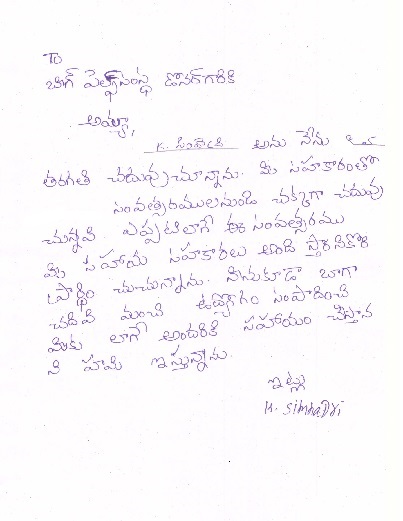 To
బిగ్ హెల్ప్ సంస్థ డోనర్ గారికి
అయ్యా,
K. సింహాద్రి అను నేను
తరగతి చదువుచున్నాను. మీ సహకారంతో
సంవత్సరములనుండి చక్కగా చదువు
చున్నవి. ఎప్పటిలాగే ఈ సంవత్సరము
మీ సహాయ సహకారలు అంది స్తారని కోరి
ప్రార్థిం చుచున్నాను. నేనుకూడా బాగా
చదివి మంచి ఉద్యోగం సంపాదించి
మీకు లాగే అందరికి సహాయం చేస్తాన
ని హామి ఇస్తున్నాను.
ఇట్లు
K. simhadri